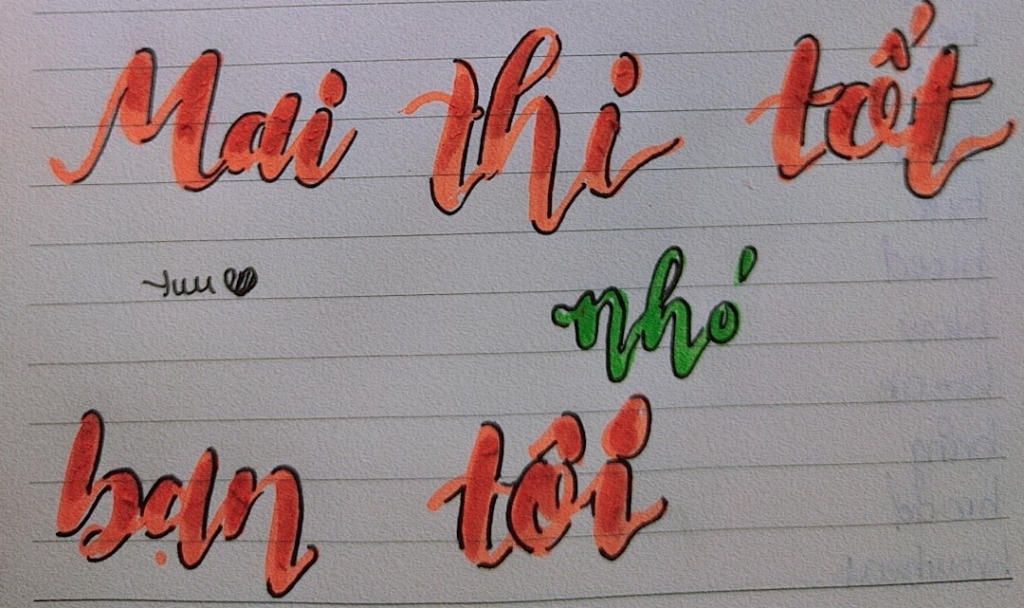 Mai thi tốt
yuu ♥ nhó
bạn tôi